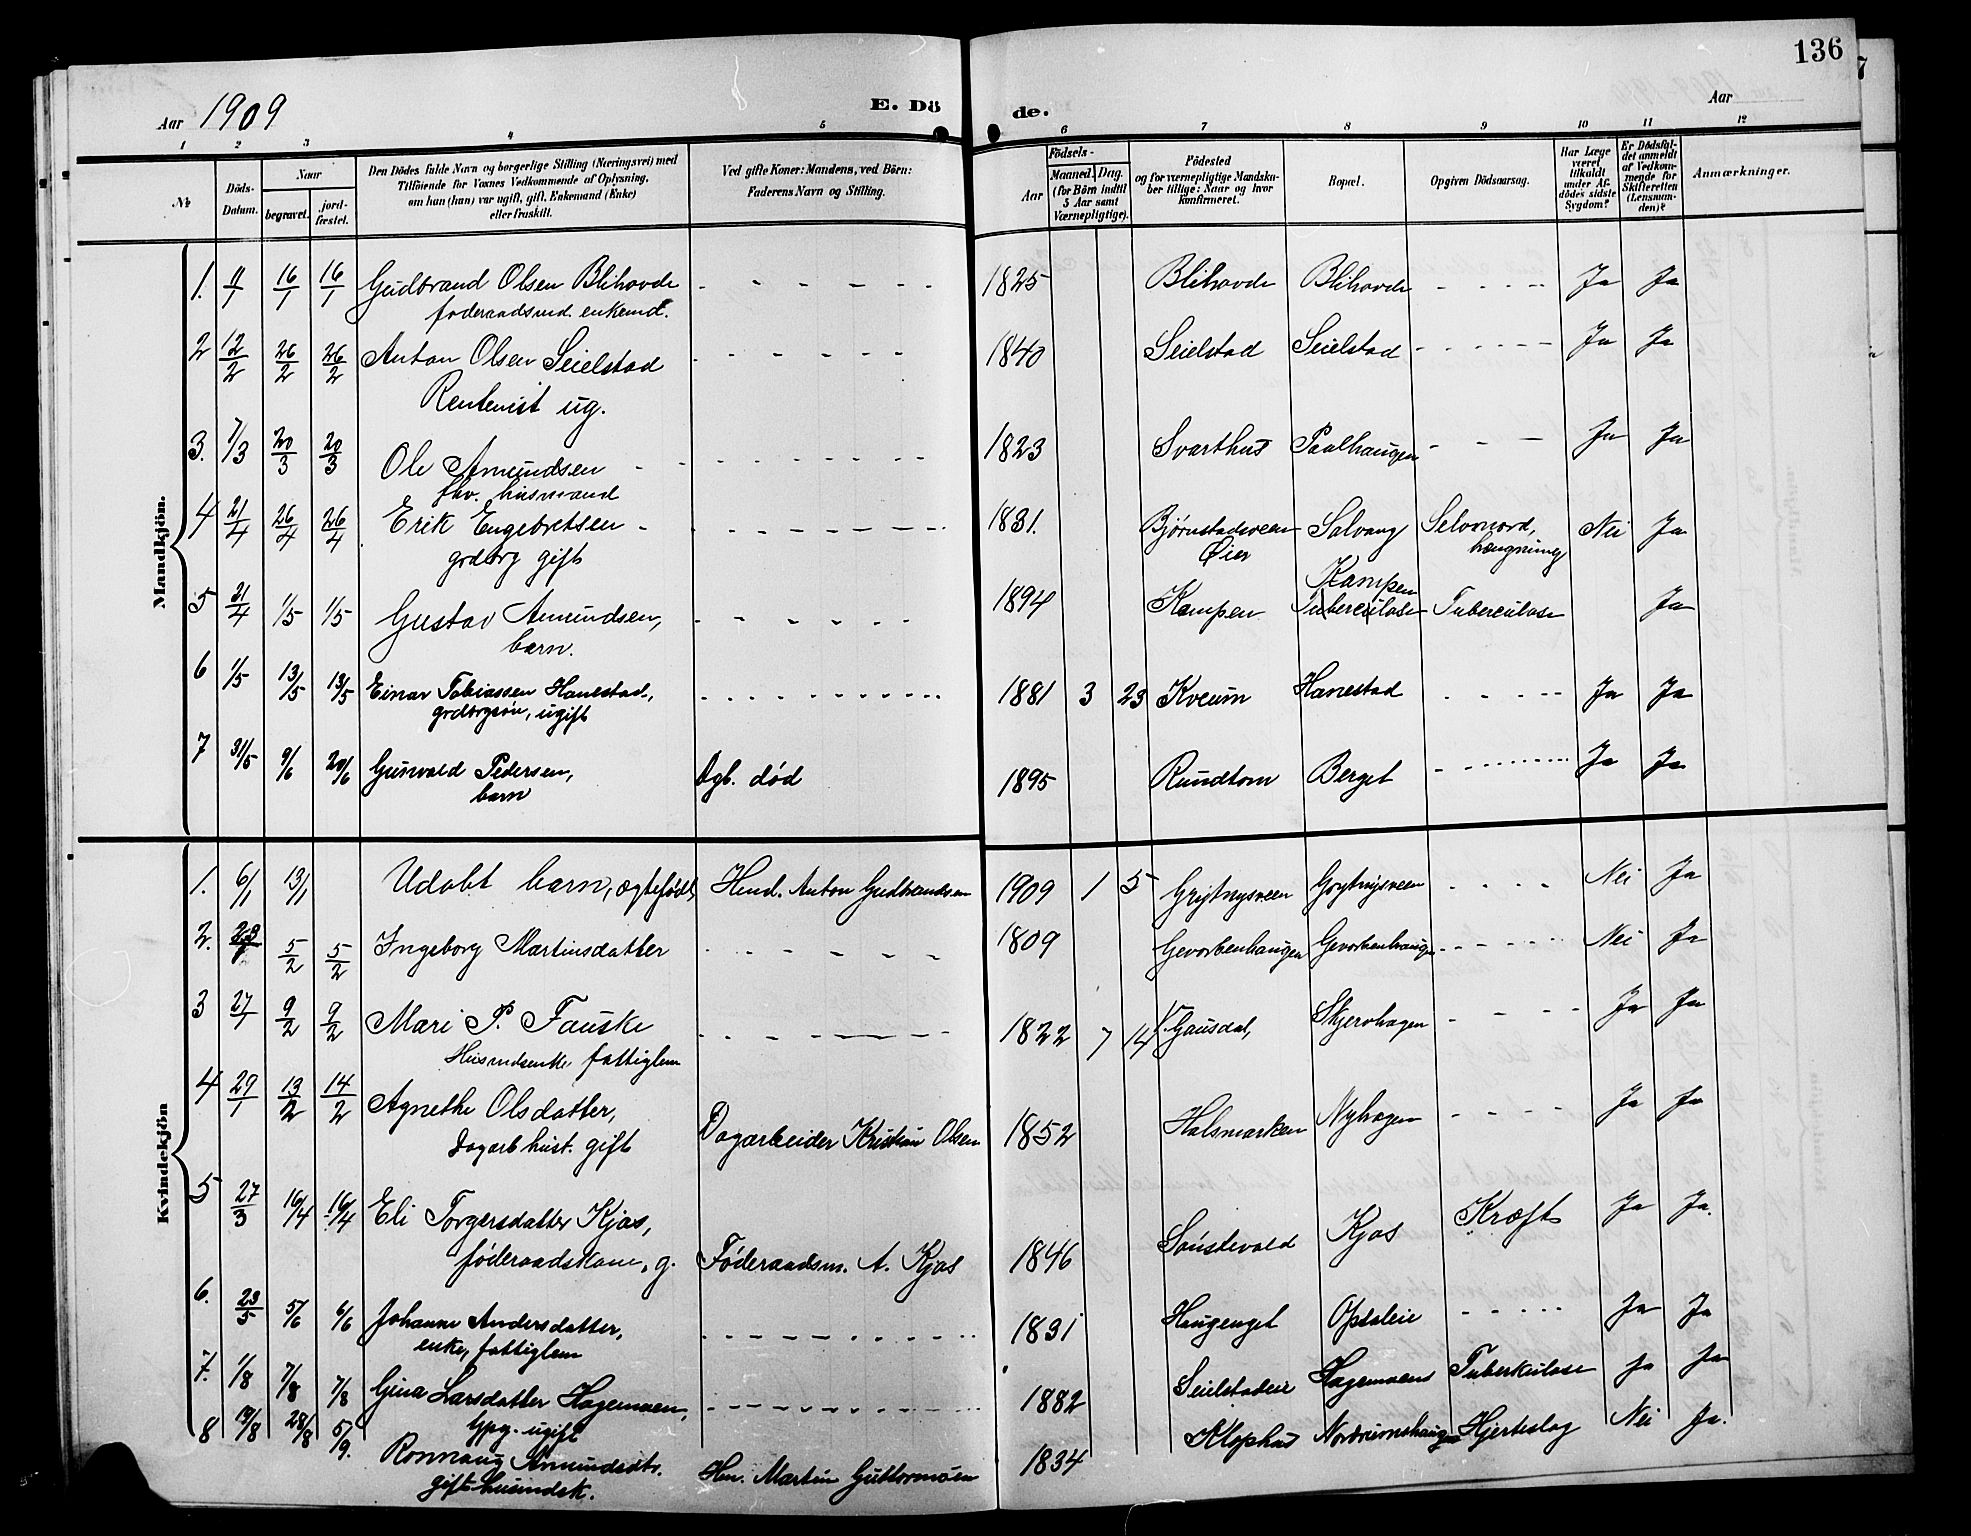 136
Aar 1909
E. Dö de.
Aar
1 2 3 4 5 6 7 8 9 10 11 12
№ Döds-Datum. Naar begravet. jord-fæstet. Den Dödes fulde Navn og borgerlige Stilling (Næringsvei) med Tilföiende for Voxnes Vedkommende af Oplysning, om han (hun) var ugift, gift, Enkemand (Enke) eller fraskilt. Ved gifte Koner: Mandens, ved Börn: Faderens Navn og Stilling. Födsels- Aar Maaned. Dag. (for Börn indtil 5 Aar samt Værnepligtige). Födested og for værnepligtige Mandskaber tillige: Naar og hvor konfirmeret. Bopæl. Opgiven Dödsaarsag. Har Læge været tilkaldt under Afdödes sidste Sygdom? Er Dödsfaldet anmeldt af Vedkommende for Skifteretten (Lensmanden)? Anmærkninger.
Mandkjön.
1. 11/1 16/1 16/1 Gudbrand Olsen Blihovde - - - - - 1825 Blihovde Blihovde - - - - Ja Ja
foderaadsmd. enkemd.
2 12/2 26/2 26/2 Anton Olsen Seielstad - - - - - 1840 Seielstad Seielstad - - - - - Ja Ja
Rentenist ug.
3. 7/3 20/3 20/3 Ole Amundsen - - - - - 1823 Svarthus Paalhaugen - - - Ja Ja
fhv. husmand
4 21/4 26/4 26/4 Erik Engebretsen - - - - - 1831. Bjørnstadsveen Solvang Selvmord, Nei Ja
grdbrg gift Øier hængning
5 21/4 1/5 1/5 Gustav Amundsen, - - - - - 1894 Kampen Kampen Tuberculose Tuberculose Ja
barn.
6 1/5 13/5 13/5 Einar Tobiassen Hanestad, - - - - - 1881 3 23 Kveum Hanestad - - - - Ja Ja
grdbrgsøn, ugift
7 31/5 9/6 20/6 Gunvald Pedersen, Dgb. død 1895 Rundtom Berget - - - - - Ja Ja
barn
Kvindekjön
1. 6/1 13/1 Udøbt barn, ægtefødt, Hmd. Anton Gudbrandsen 1909 1 5 Grytnysveen Grytnysveen - - - - Nei Ja
2. 5/2 5/2 Ingeborg Martinsdatter - - - - - 1809 Gevorbenhaugen Gevorbenhaugen - - - - - Nei Ja
3 27/1 9/2 9/2 Mari P. Fauske - - - - - 1822 7 14 V. Gausdal, Skjervhagen - - - - Ja Ja
Husmdsenke, fattiglem
4 29/1 13/2 14/2 Agnethe Olsdatter, Dagarbeider Kristian Olsen 1852 Holsmarken Nyhagen - - - - Ja Ja
Dagarb hust. gift
5 27/3 16/4 16/4 Eli Torgersdatter Kjos, Føderaadsm. A. Kjos 1846 Sønstevold Kjos Kræft Ja Ja.
føderaadskone, g.
6. 23/5 5/6 6/6 Johanne Andersdatter, - - - - - 1831 Haugenget Opsaleie - - - - - Ja Ja
enke, fattiglem
7. 1/8 7/8 7/8 Gina Larsdatter Hagemoen, - - - - - 1882 Seielstadeie Hagemoens Tuberkulose Ja Ja
ugift
8 19/8 28/8 5/9. Ronnaug Amundsdtr. Hm. Martin Guttormsen 1834 Klophus Nordrumshaugen Hjerteslag Nei Ja.
gift husmdsk.